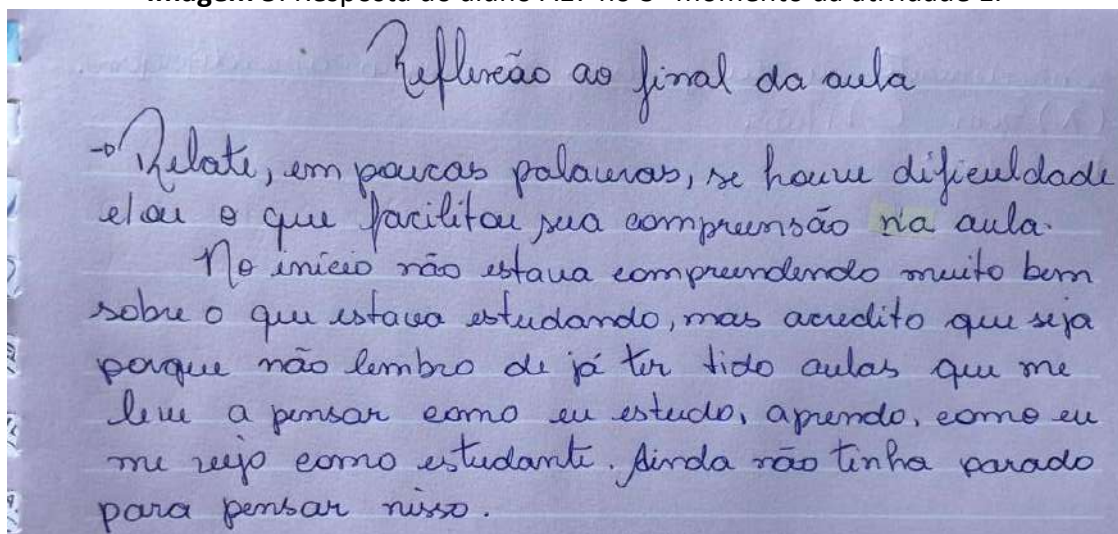 Reflexão ao final da aula
→ Relate, em poucas palavras, se houve dificuldade
e/ou o que facilitou sua compreensão na aula.
No início não estava compreendendo muito bem
sobre o que estava estudando, mas acredito que seja
porque não lembro de já ter tido aulas que me
leve a pensar como eu estudo, aprendo, como eu
me vejo como estudante. Ainda não tinha parado
para pensar nisso.